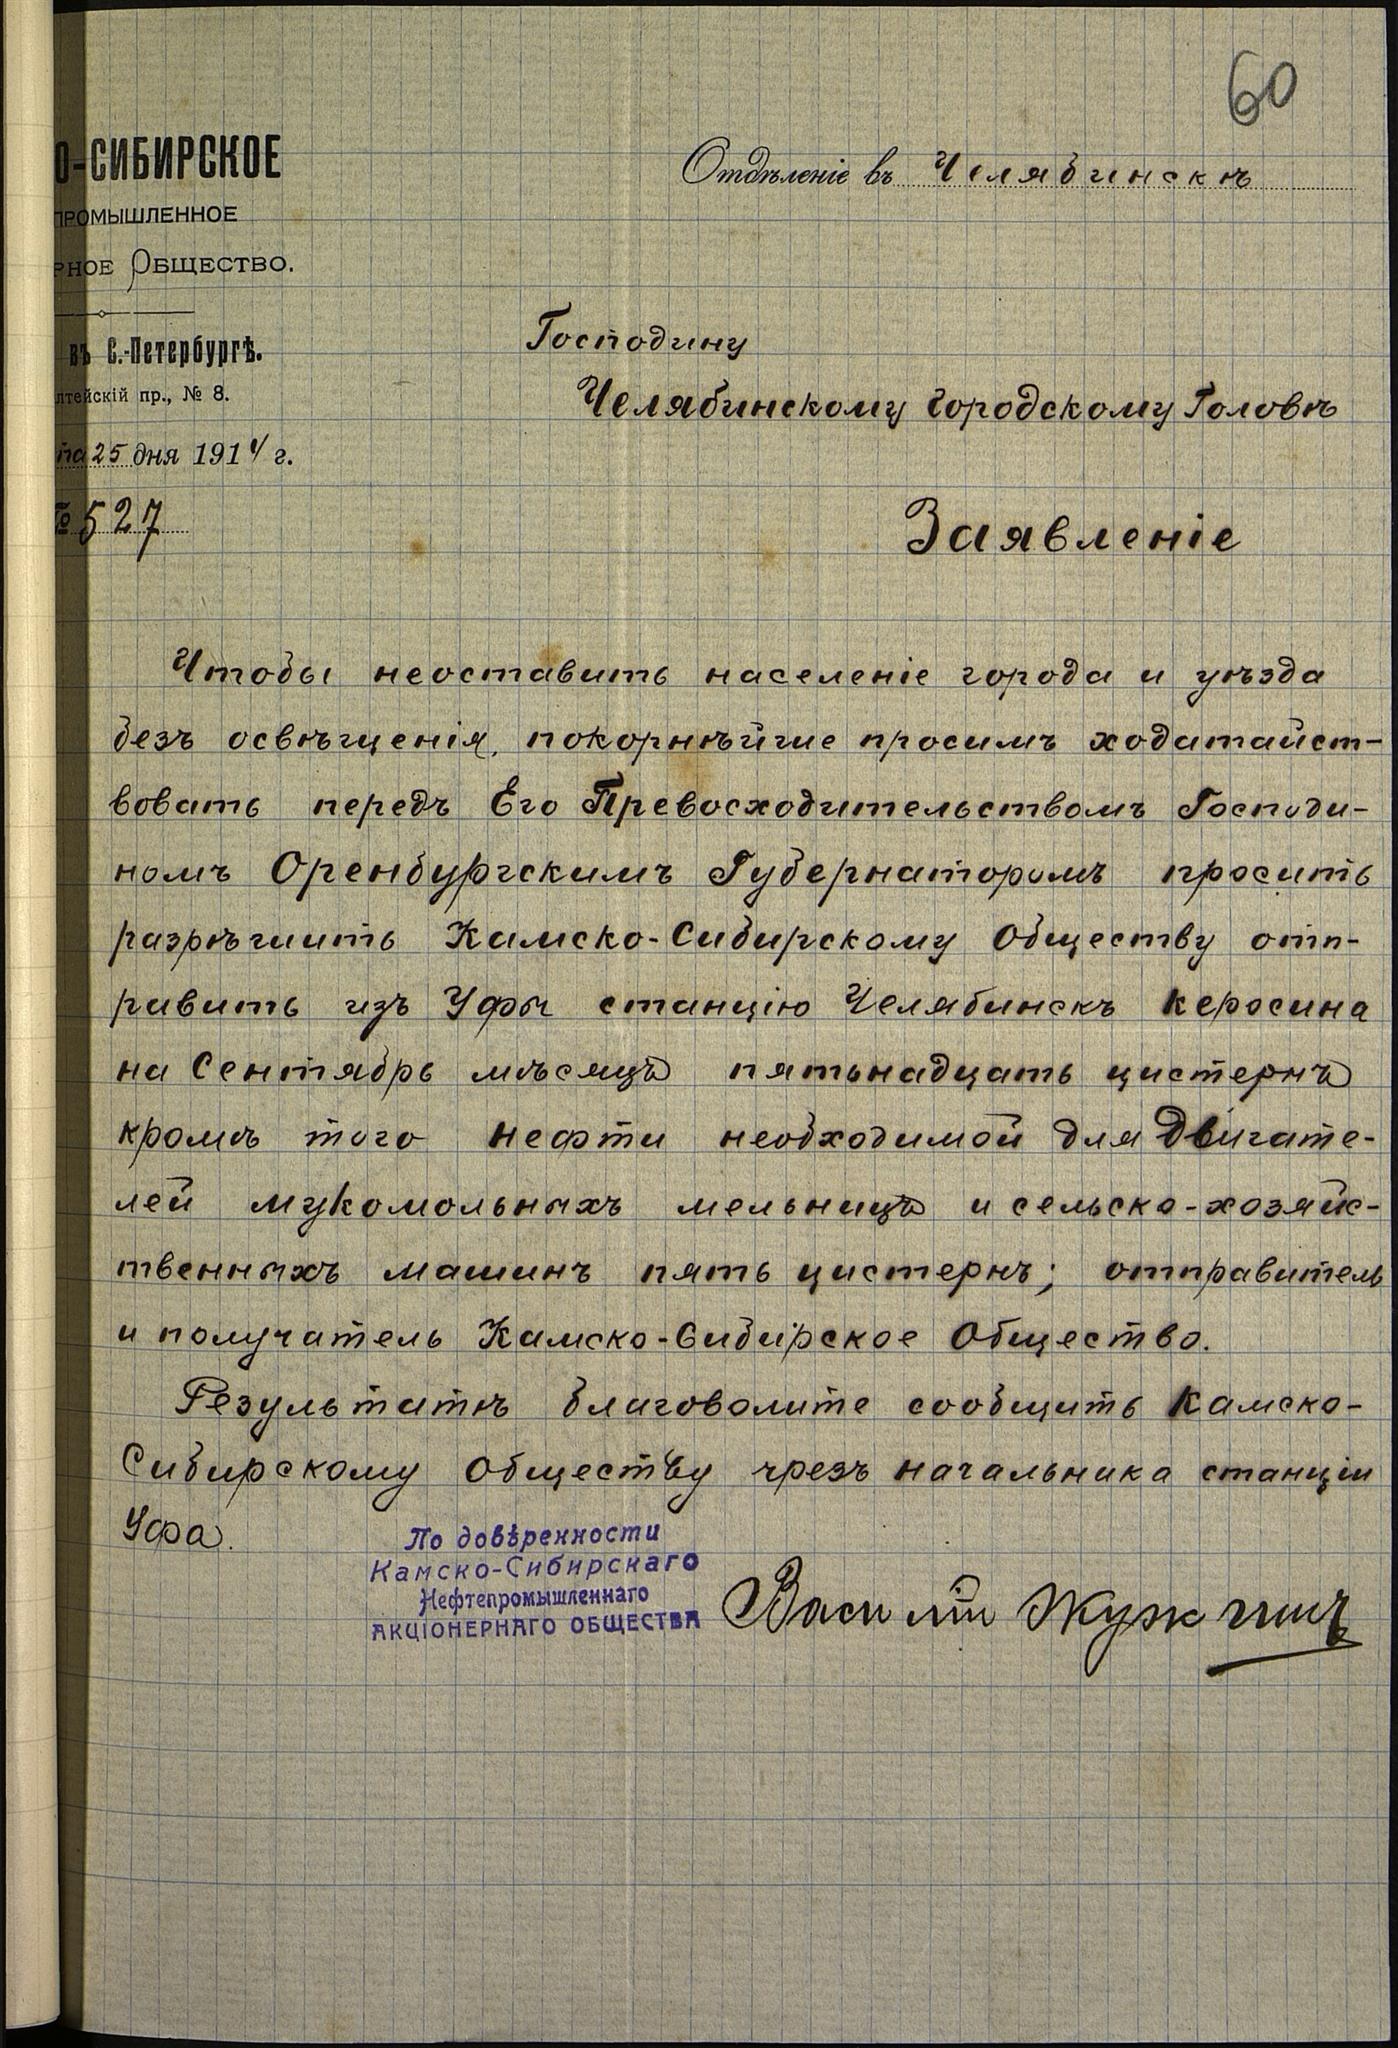 60
О-СИБИРСКОЕ
ПРОМЫШЛЕННОЕ
РНОЕ ОБЩЕСТВО.
въ С.-Петербургѣ.
лтейскій пр., № 8.
та 25 дня 1914 г.
№ 527
Отдѣленіе въ Челябинскѣ
Господину
Челябинскому Городскому Головѣ
Заявленіе
Чтобы неоставить населеніе города и уѣзда
безъ освѣщенія, покорнѣйше просимъ ходатайст-
вовать передъ Его Превосходительствомъ Господи-
номъ Оренбургскимъ Губернаторомъ просить
разрѣшить Камско-Сибирскому Обществу отп-
равить изъ Уфы станцію Челябинскъ керосина
на Сентябрь мѣсяцъ пятьнадцать цистернъ
кромѣ того нефти необходимой для двигате-
лей мукомольныхъ мельницъ и сельско-хозяйс-
твенныхъ машинъ пять цистернъ; отправитель
и получатель Камско-Сибирское Общество.
Результатѣ благоволите сообщить Камско-
Сибирскому Обществу чрезъ начальника станціи
Уфа.
По довѣренности
Камско-Сибирскаго
Нефтепромышленнаго
АКЦІОНЕРНАГО ОБЩЕСТВА
Василій